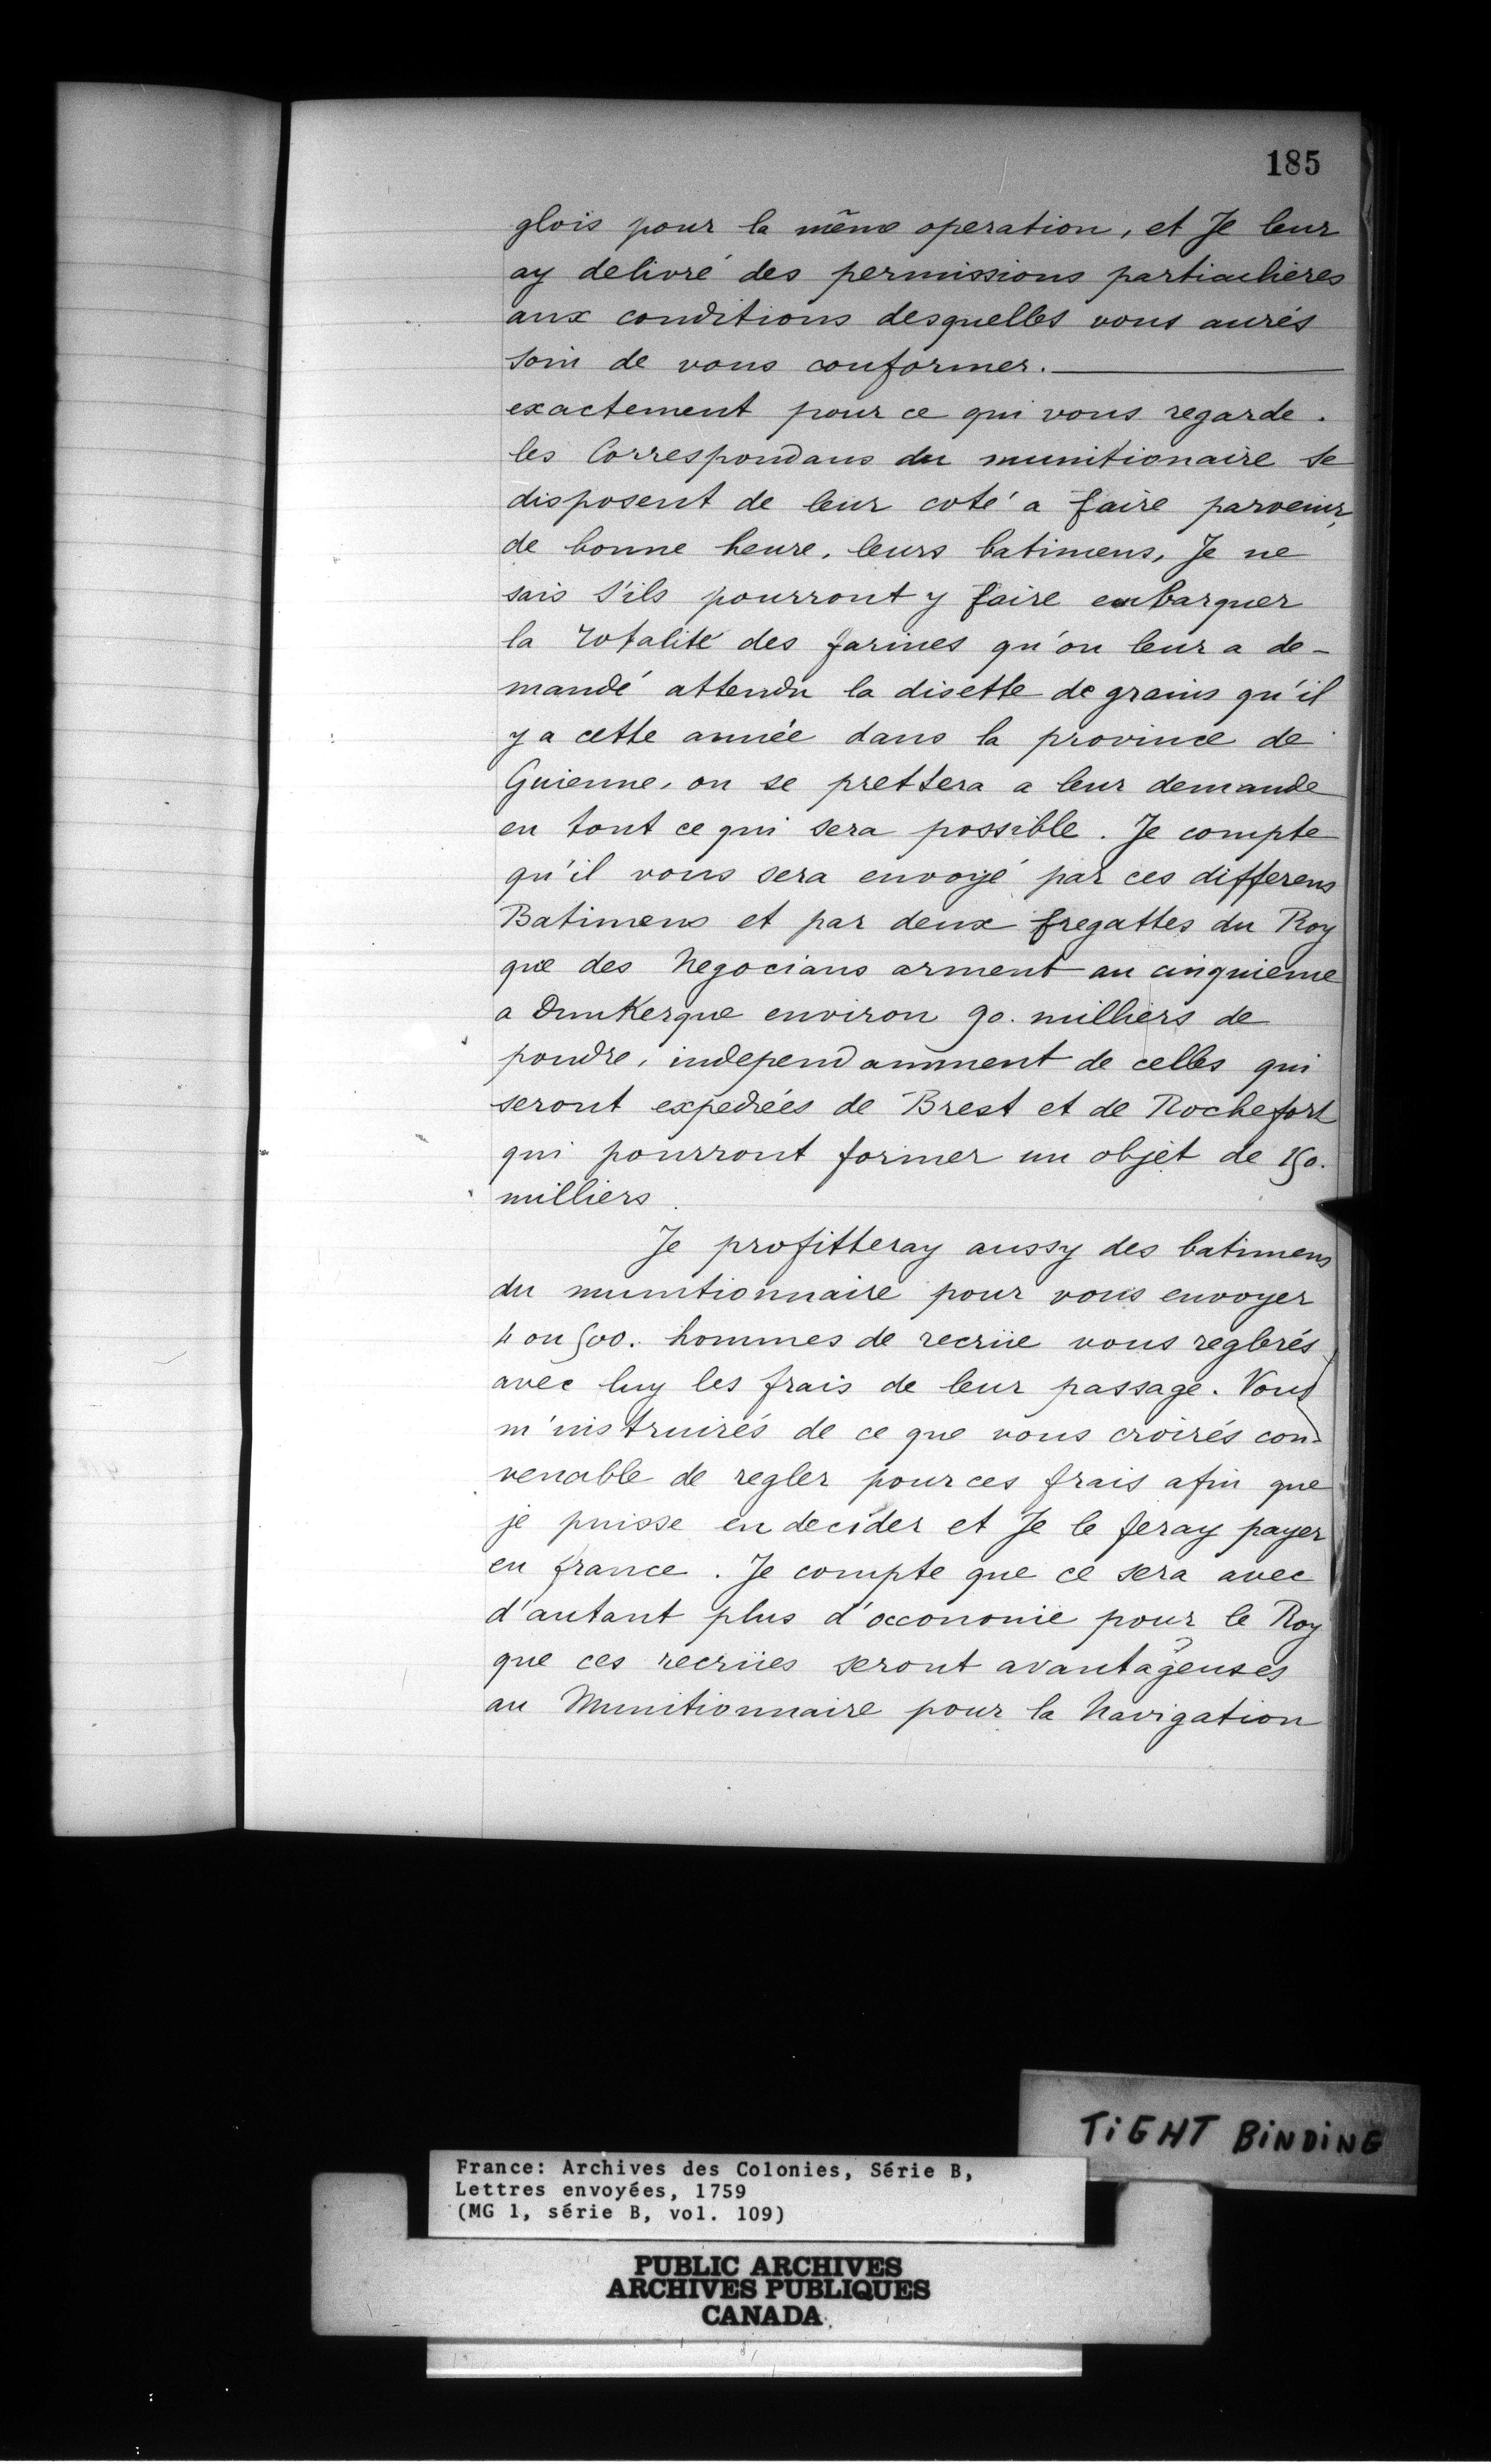 185
glois pour la même operation, et Je leur
ay delivré des permissions particulieres
aux conditions desquelles vous aurés
soin de vous conformer.
exactement pour ce qui vous regarde.
les Correspondans du munitionaire se
disposent de leur coté a faire parvenir,
de bonne heure, leurs batimens, Je ne
sais s'ils pourront y faire embarquer
la totalité des farines qu'on leur a de-
mandé attendu la disette de grains qu'il
y a cette année dans la province de
Guienne, on se prettera a leur demande
en tout ce qui sera possible. Je compte
qu'il vous sera envoyé par ces differens
Batimens et par deux fregattes du Roy
que des Negocians arment au cinquieme
a Dunkerque environ 90. milliers de
poudre, independamment de celles qui
seront expediées de Brest et de Rochefort
qui pourront former un objet de 150.
milliers.
Je profitteray aussy des batimens
du munitionnaire pour vous envoyer
4 ou 500. hommes de recrüe vous reglerés
avec luy les frais de leur passage. Vous
m'instruirés de ce que vous croirés con-
venable de regler pour ces frais afin que
je puisse en decider et Je le feray payer
en france. Je compte que ce sera avec
d'autant plus d'œconomie pour le Roy
que ces recrües seront avantageuses
au Munitionnaire pour la Navigation
TIGHT BINDING
France: Archives des Colonies, Série B,
Lettres envoyées, 1759
(MG 1, série B, vol. 109)
PUBLIC ARCHIVES
ARCHIVES PUBLIQUES
CANADA